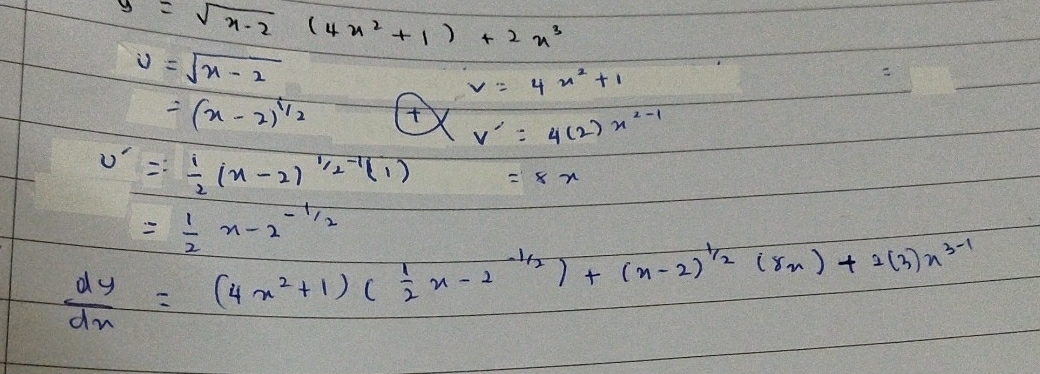 y = √x-2 (4x² + 1) + 2x³
u = √x - 2
v = 4x² + 1 =
= (x - 2)^1/2
+ v´ = 4(2)x^2-1
u´ = 1/2 (x - 2)^1/2-1 (1) = 8x
= 1/2 x - 2^-1/2
dy/dx = (4x² + 1) ( 1/2 x - 2^-1/2 ) + (x - 2)^1/2 (8x) + 2(3)x^3-1